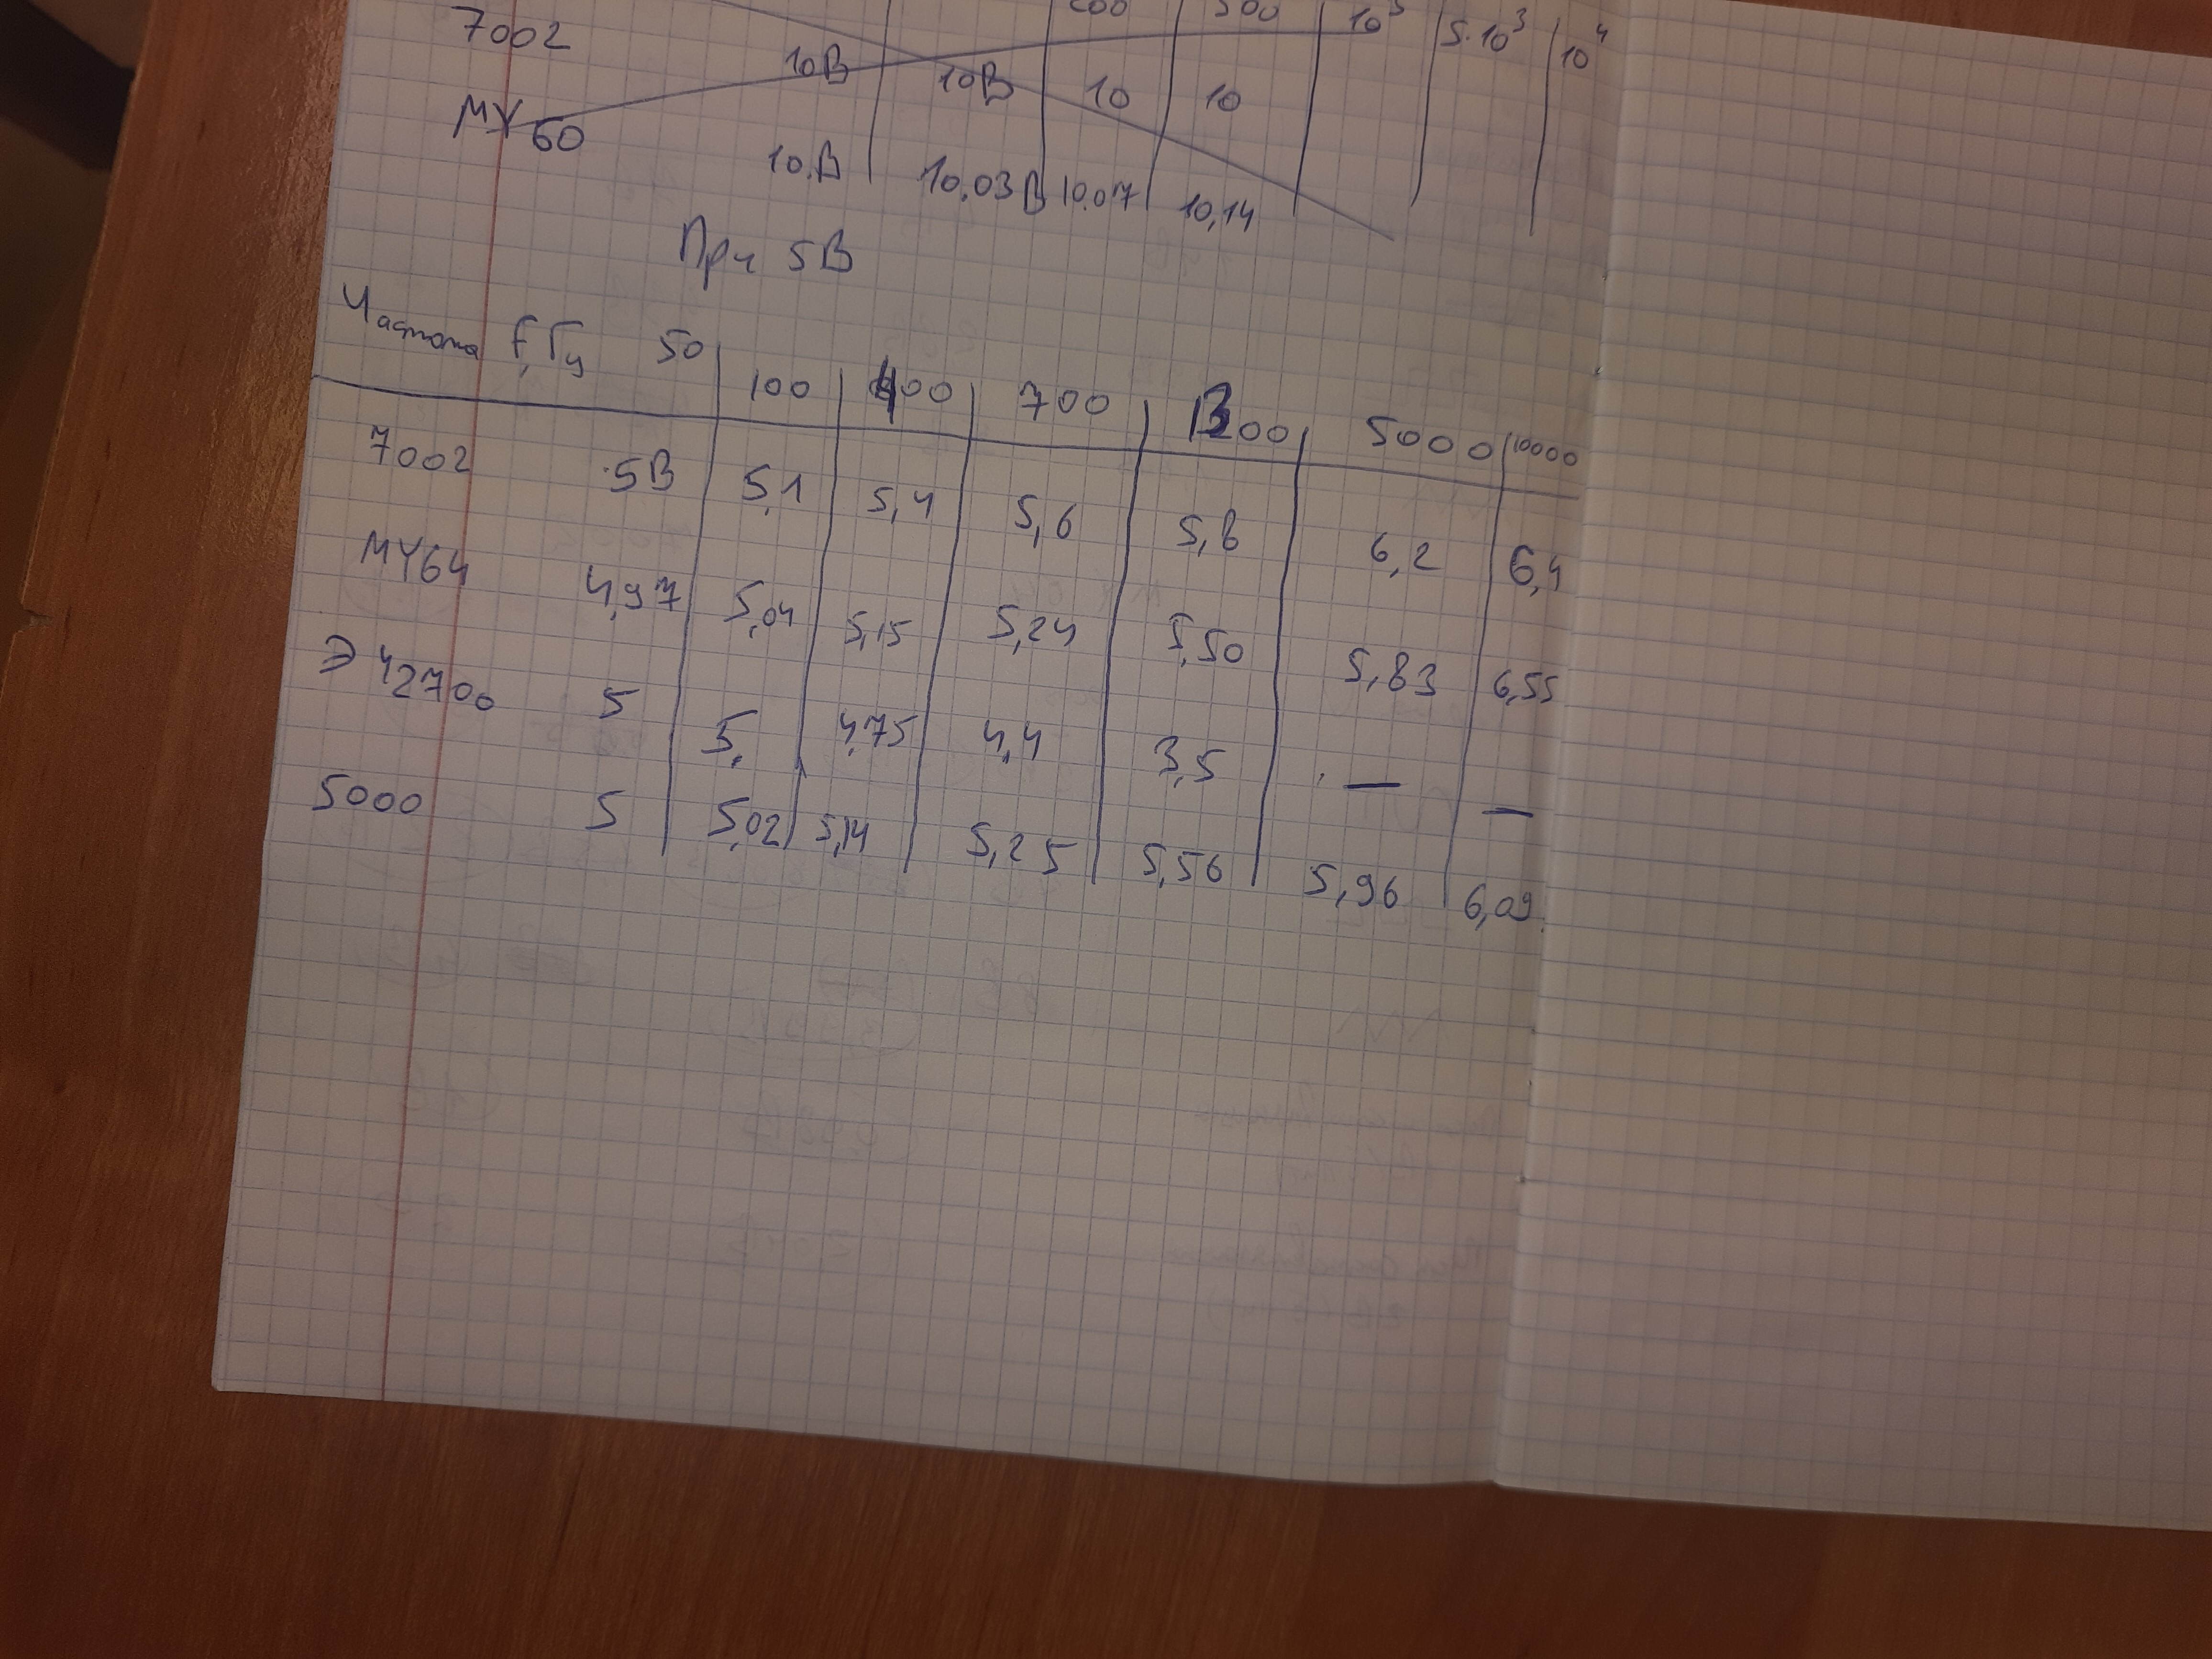 500 10³ 5·10³ 10⁴
7002 10В 10В 10 10
МУ60 10.В 10,03В 10,07 10,14
При 5В
Частота f, Гц 50 100 400 700 1300 5000 10000
7002 5В 5,1 5,4 5,6 5,8 6,2 6,4
MY64 4,97 5,04 5,15 5,24 5,50 5,83 6,55
Э42700 5 5, 4,75 4,4 3,5 — —
5000 5 5,02 5,14 5,25 5,56 5,96 6,09